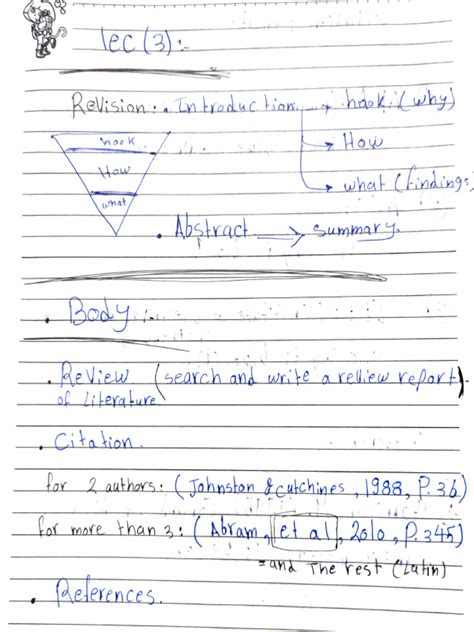 lec (3):-
Revision: • Introduction → hook (why)
→ How
→ what (findings)
hook
How
what
• Abstract → summary.
• Body
• Review (search and write a reliew report).
of Literature.
• Citation.
for 2 authors: (Johnston & Cutchines, 1988, P. 36)
for more than 3: (Abram, et al, 2010, P. 345)
= and The rest (Latin)
• References.